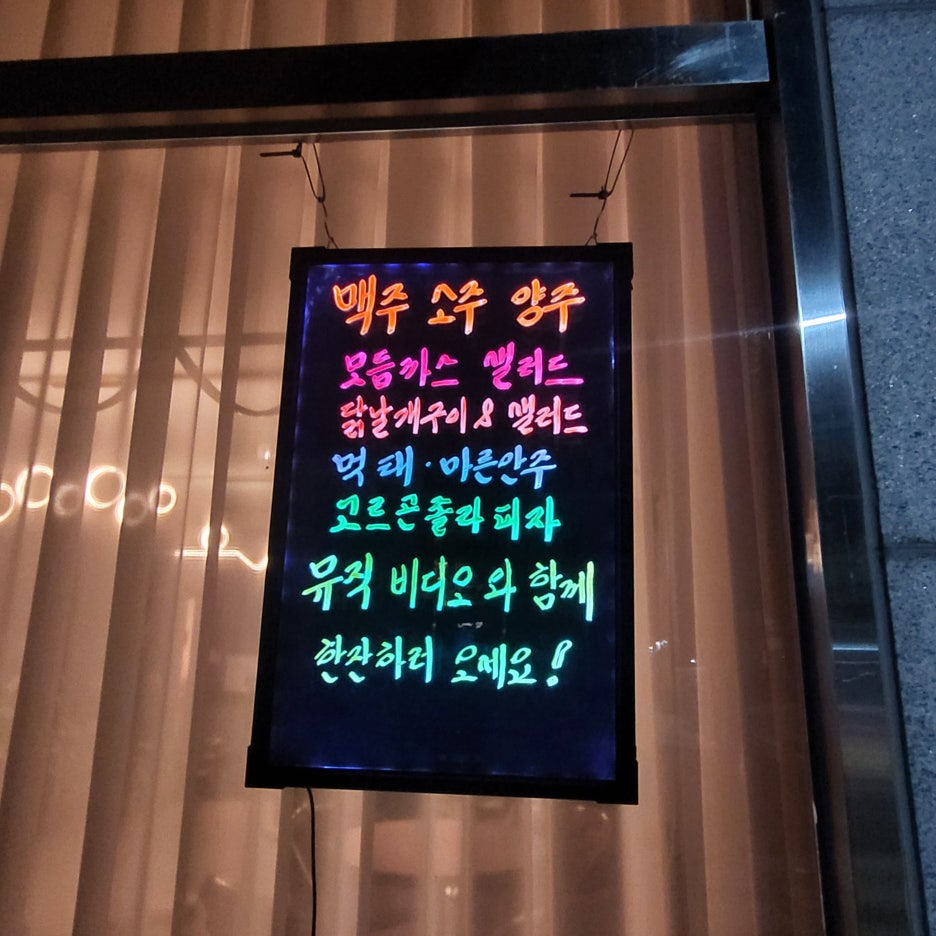 맥주 소주 양주
모듬까스 샐러드
닭날개구이 & 샐러드
먹태·마른안주
고르곤졸라 피자
뮤직 비디오와 함께
한잔하러 오세요!